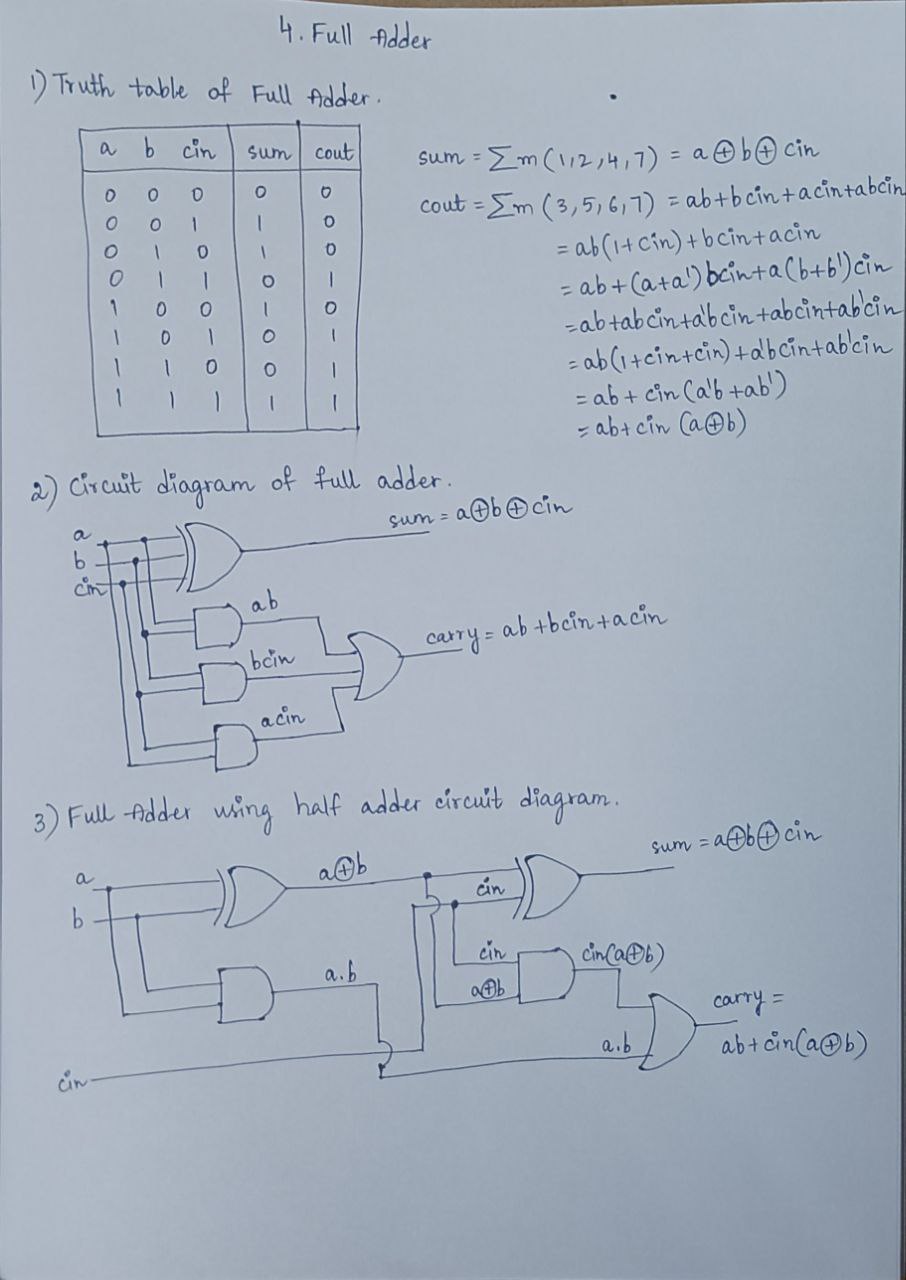 4. Full Adder
1) Truth table of Full Adder.
a b cin sum cout
0 0 0 0 0
0 0 1 1 0
0 1 0 1 0
0 1 1 0 1
1 0 0 1 0
1 0 1 0 1
1 1 0 0 1
1 1 1 1 1
sum = Σm (1,2,4,7) = a⊕b⊕cin
cout = Σm (3,5,6,7) = ab+bcin+acin+abcin
= ab(1+cin)+bcin+acin
= ab+(a+a')bcin+a(b+b')cin
= ab+abcin+a'bcin+abcin+ab'cin
= ab(1+cin+cin)+a'bcin+ab'cin
= ab+cin(a'b+ab')
= ab+cin (a⊕b)
2) Circuit diagram of full adder.
sum = a⊕b⊕cin
a
b
cin
ab
bcin
acin
carry = ab+bcin+acin
3) Full Adder using half adder circuit diagram.
sum = a⊕b⊕cin
a
b
a⊕b
cin
a.b
cin
a⊕b
cin(a⊕b)
carry =
ab+cin(a⊕b)
a.b
cin